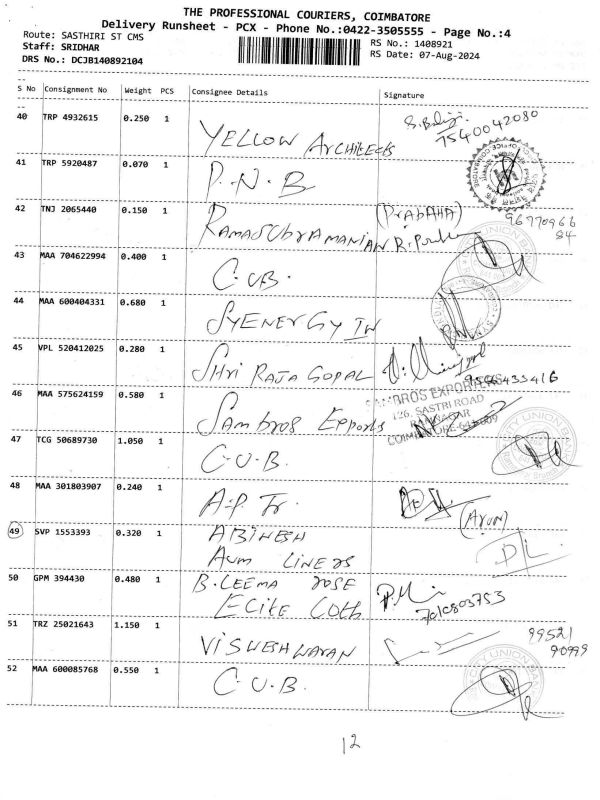 THE PROFESSIONAL COURIERS, COIMBATORE
Delivery Runsheet - PCX - Phone No.:0422-3505555 - Page No.:4
Route: SASTHIRI ST CMS
RS No.: 1408921
Staff: SRIDHAR
RS Date: 07-Aug-2024
DRS No.: DCJB140892104
S No Consignment No Weight PCS Consignee Details Signature
40 TRP 4932615 0.250 1 YELLOW ARCHITECTS 7540042080
41 TRP 5920487 0.070 1 P.N.B
42 TNJ 2065440 0.150 1 RAMASUBRAMANIAN (PrabAHA) 96770966
84
43 MAA 704622994 0.400 1 C.UB.
44 MAA 600404331 0.680 1 SYENERGY IN
45 VPL 520412025 0.280 1 SHri RAJA GOPAL
46 MAA 575624159 0.580 1 SAmbros Epports
SAMBROS EXPORTERS
126, SASTRI ROAD
RAMNAGAR
COIMBATORE-641 009
47 TCG 50689730 1.050 1 C.U.B.
CITY UNION BANK
48 MAA 301803907 0.240 1 A.P. Tr.
(ARUN)
49 SVP 1553393 0.320 1 ABINESH
Aum LINERS
50 GPM 394430 0.480 1 B.LEEMA rose
ECite Coth
7010803753
51 TRZ 25021643 1.150 1 VISWESHWARAN 99521
90999
52 MAA 600085768 0.550 1 C.U.B.
CITY UNION BANK
12